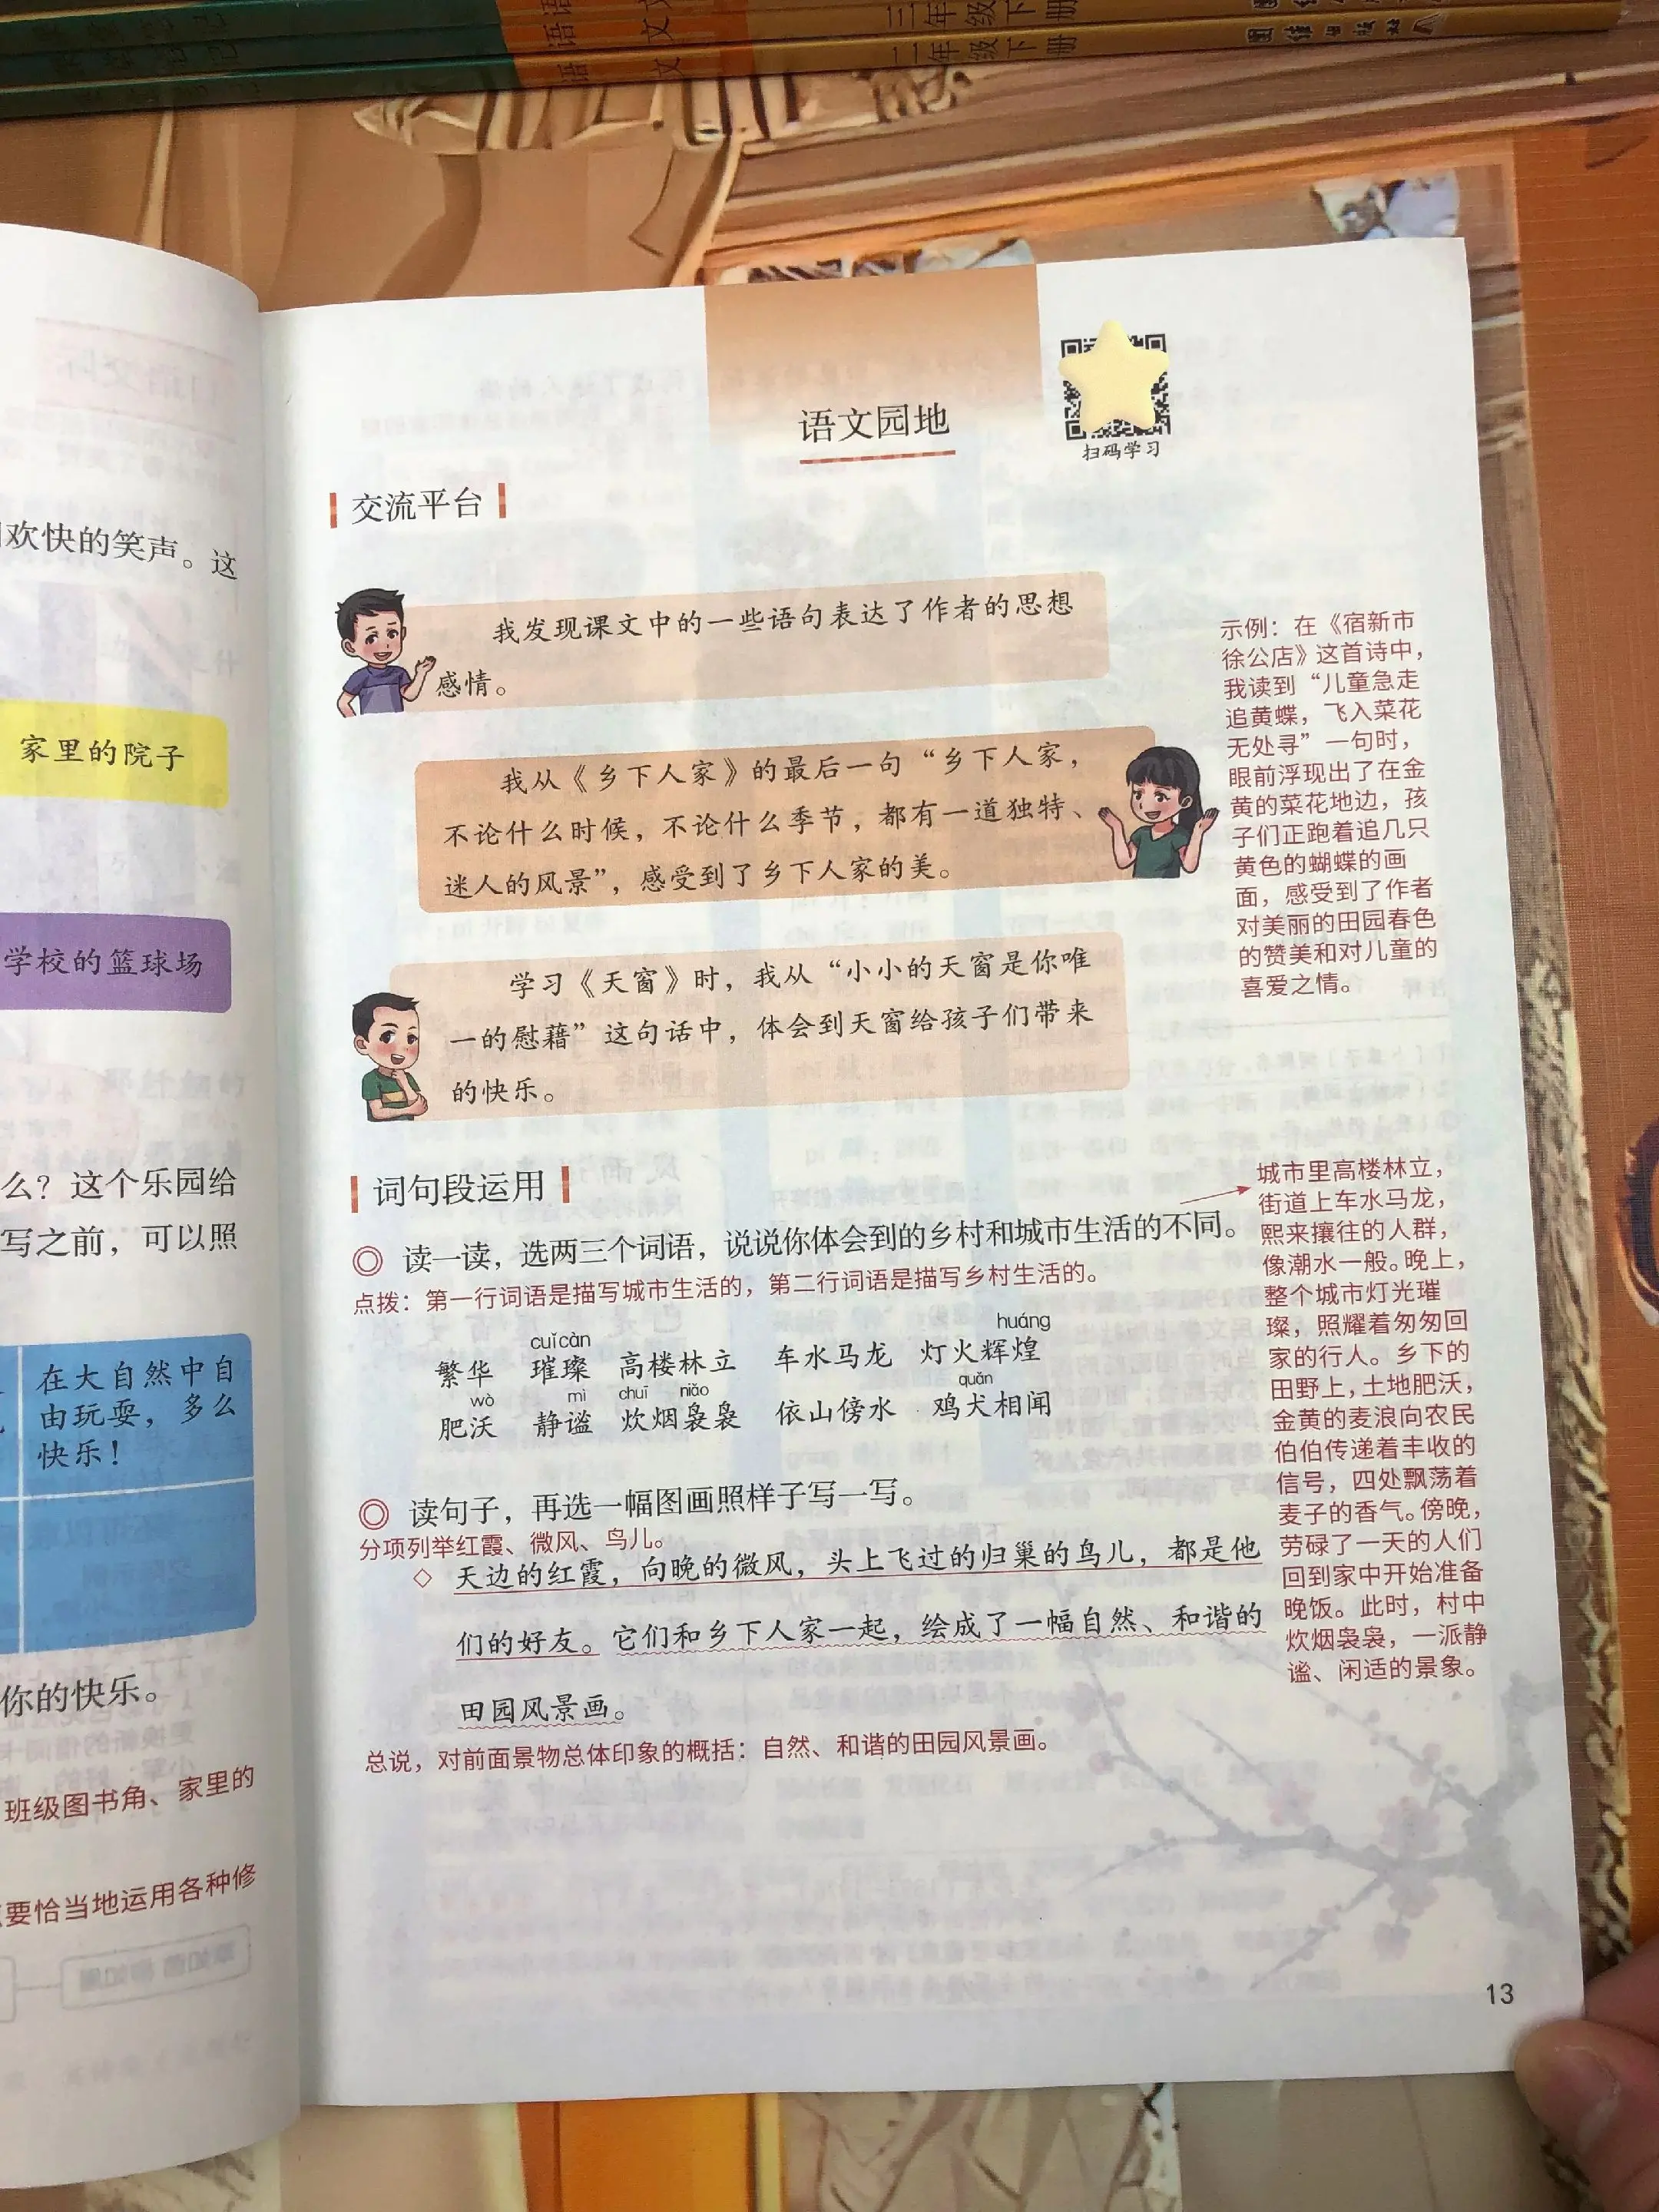 三年级下册
二年级下册
欢快的笑声。这
家里的院子
学校的篮球场
么？这个乐园给
写之前，可以照
在大自然中自
由玩耍，多么
快乐！
你的快乐。
班级图书角、家里的
要恰当地运用各种修
语文园地
扫码学习
交流平台
我发现课文中的一些语句表达了作者的思想
感情。
我从《乡下人家》的最后一句“乡下人家，
不论什么时候，不论什么季节，都有一道独特、
迷人的风景”，感受到了乡下人家的美。
学习《天窗》时，我从“小小的天窗是你唯
一的慰藉”这句话中，体会到天窗给孩子们带来
的快乐。
示例：在《宿新市
徐公店》这首诗中，
我读到“儿童急走
追黄蝶，飞入菜花
无处寻”一句时，
眼前浮现出了在金
黄的菜花地边，孩
子们正跑着追几只
黄色的蝴蝶的画
面，感受到了作者
对美丽的田园春色
的赞美和对儿童的
喜爱之情。
词句段运用
◎ 读一读，选两三个词语，说说你体会到的乡村和城市生活的不同。
点拨：第一行词语是描写城市生活的，第二行词语是描写乡村生活的。
cuǐcàn huáng
繁华 璀璨 高楼林立 车水马龙 灯火辉煌
wò mì chuī niǎo quǎn
肥沃 静谧 炊烟袅袅 依山傍水 鸡犬相闻
◎ 读句子，再选一幅图画照样子写一写。
分项列举红霞、微风、鸟儿。
◇ 天边的红霞，向晚的微风，头上飞过的归巢的鸟儿，都是他
们的好友。它们和乡下人家一起，绘成了一幅自然、和谐的
田园风景画。
总说，对前面景物总体印象的概括：自然、和谐的田园风景画。
城市里高楼林立，
街道上车水马龙，
熙来攘往的人群，
像潮水一般。晚上，
整个城市灯光璀
璨，照耀着匆匆回
家的行人。乡下的
田野上，土地肥沃，
金黄的麦浪向农民
伯伯传递着丰收的
信号，四处飘荡着
麦子的香气。傍晚，
劳碌了一天的人们
回到家中开始准备
晚饭。此时，村中
炊烟袅袅，一派静
谧、闲适的景象。
13